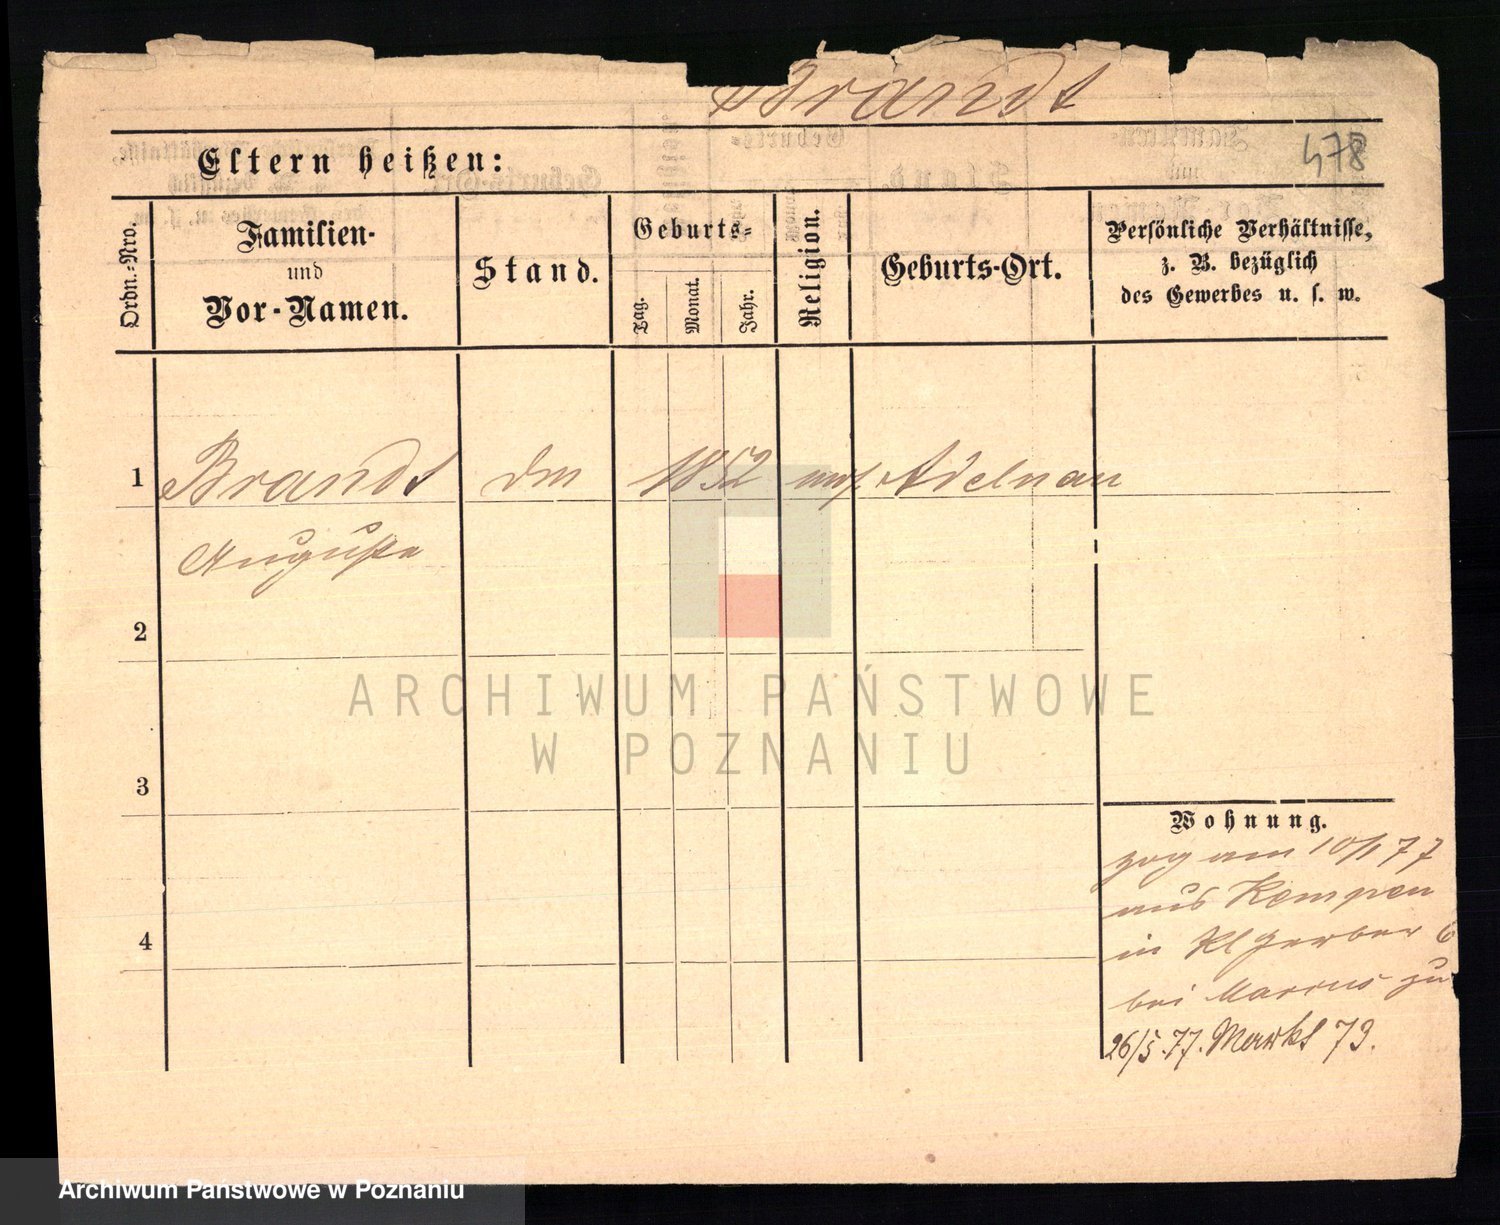 Brandt
478
Eltern heißen:
Ordn.-Nro.
Familien-
und
Vor-Namen.
Stand.
Geburts-
Tag.
Monat.
Jahr.
Religion.
Geburts-Ort.
Persönliche Verhältnisse,
z. B. bezüglich
des Gewerbes u. s. w.
1
Brandt
1852
Adelnau
Auguste
2
ARCHIWUM PAŃSTWOWE
W POZNANIU
3
Wohnung.
zog am 10/1 77
aus Kempen
in Kl Gerber 6
bei Marcus zu
4
26/5. 77. Markt 73.
Archiwum Państwowe w Poznaniu